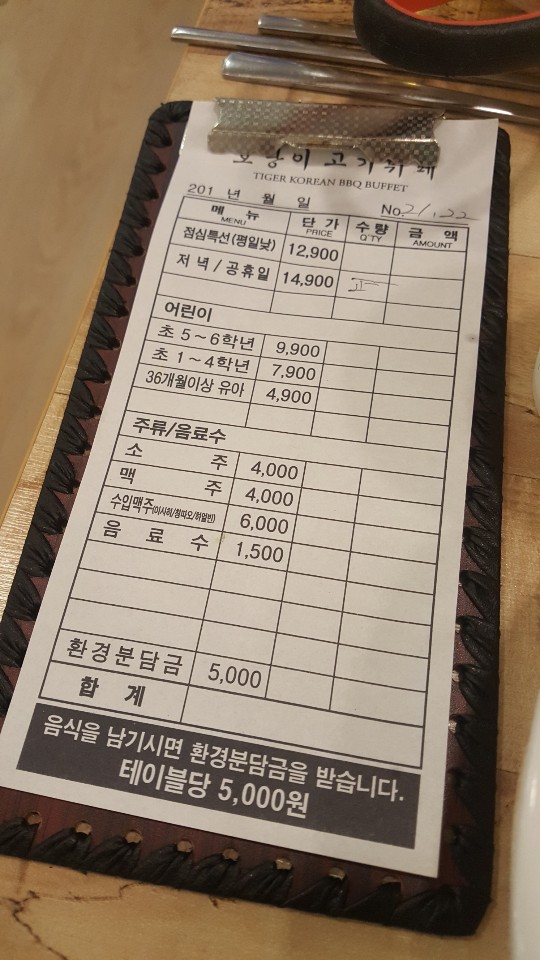 호랑이 고기뷔페
TIGER KOREAN BBQ BUFFET
201 년 월 일 No. 21, 22
메 뉴 단 가 수량 금 액
MENU PRICE Q'TY AMOUNT
점심특선(평일낮) 12,900
저녁/공휴일 14,900
어린이
초 5~6학년 9,900
초 1~4학년 7,900
36개월이상 유아 4,900
주류/음료수
소 주 4,000
맥 주 4,000
수입맥주(아사히/칭따오/하얼빈) 6,000
음 료 수 1,500
환경분담금 5,000
합 계
음식을 남기시면 환경분담금을 받습니다.
테이블당 5,000원